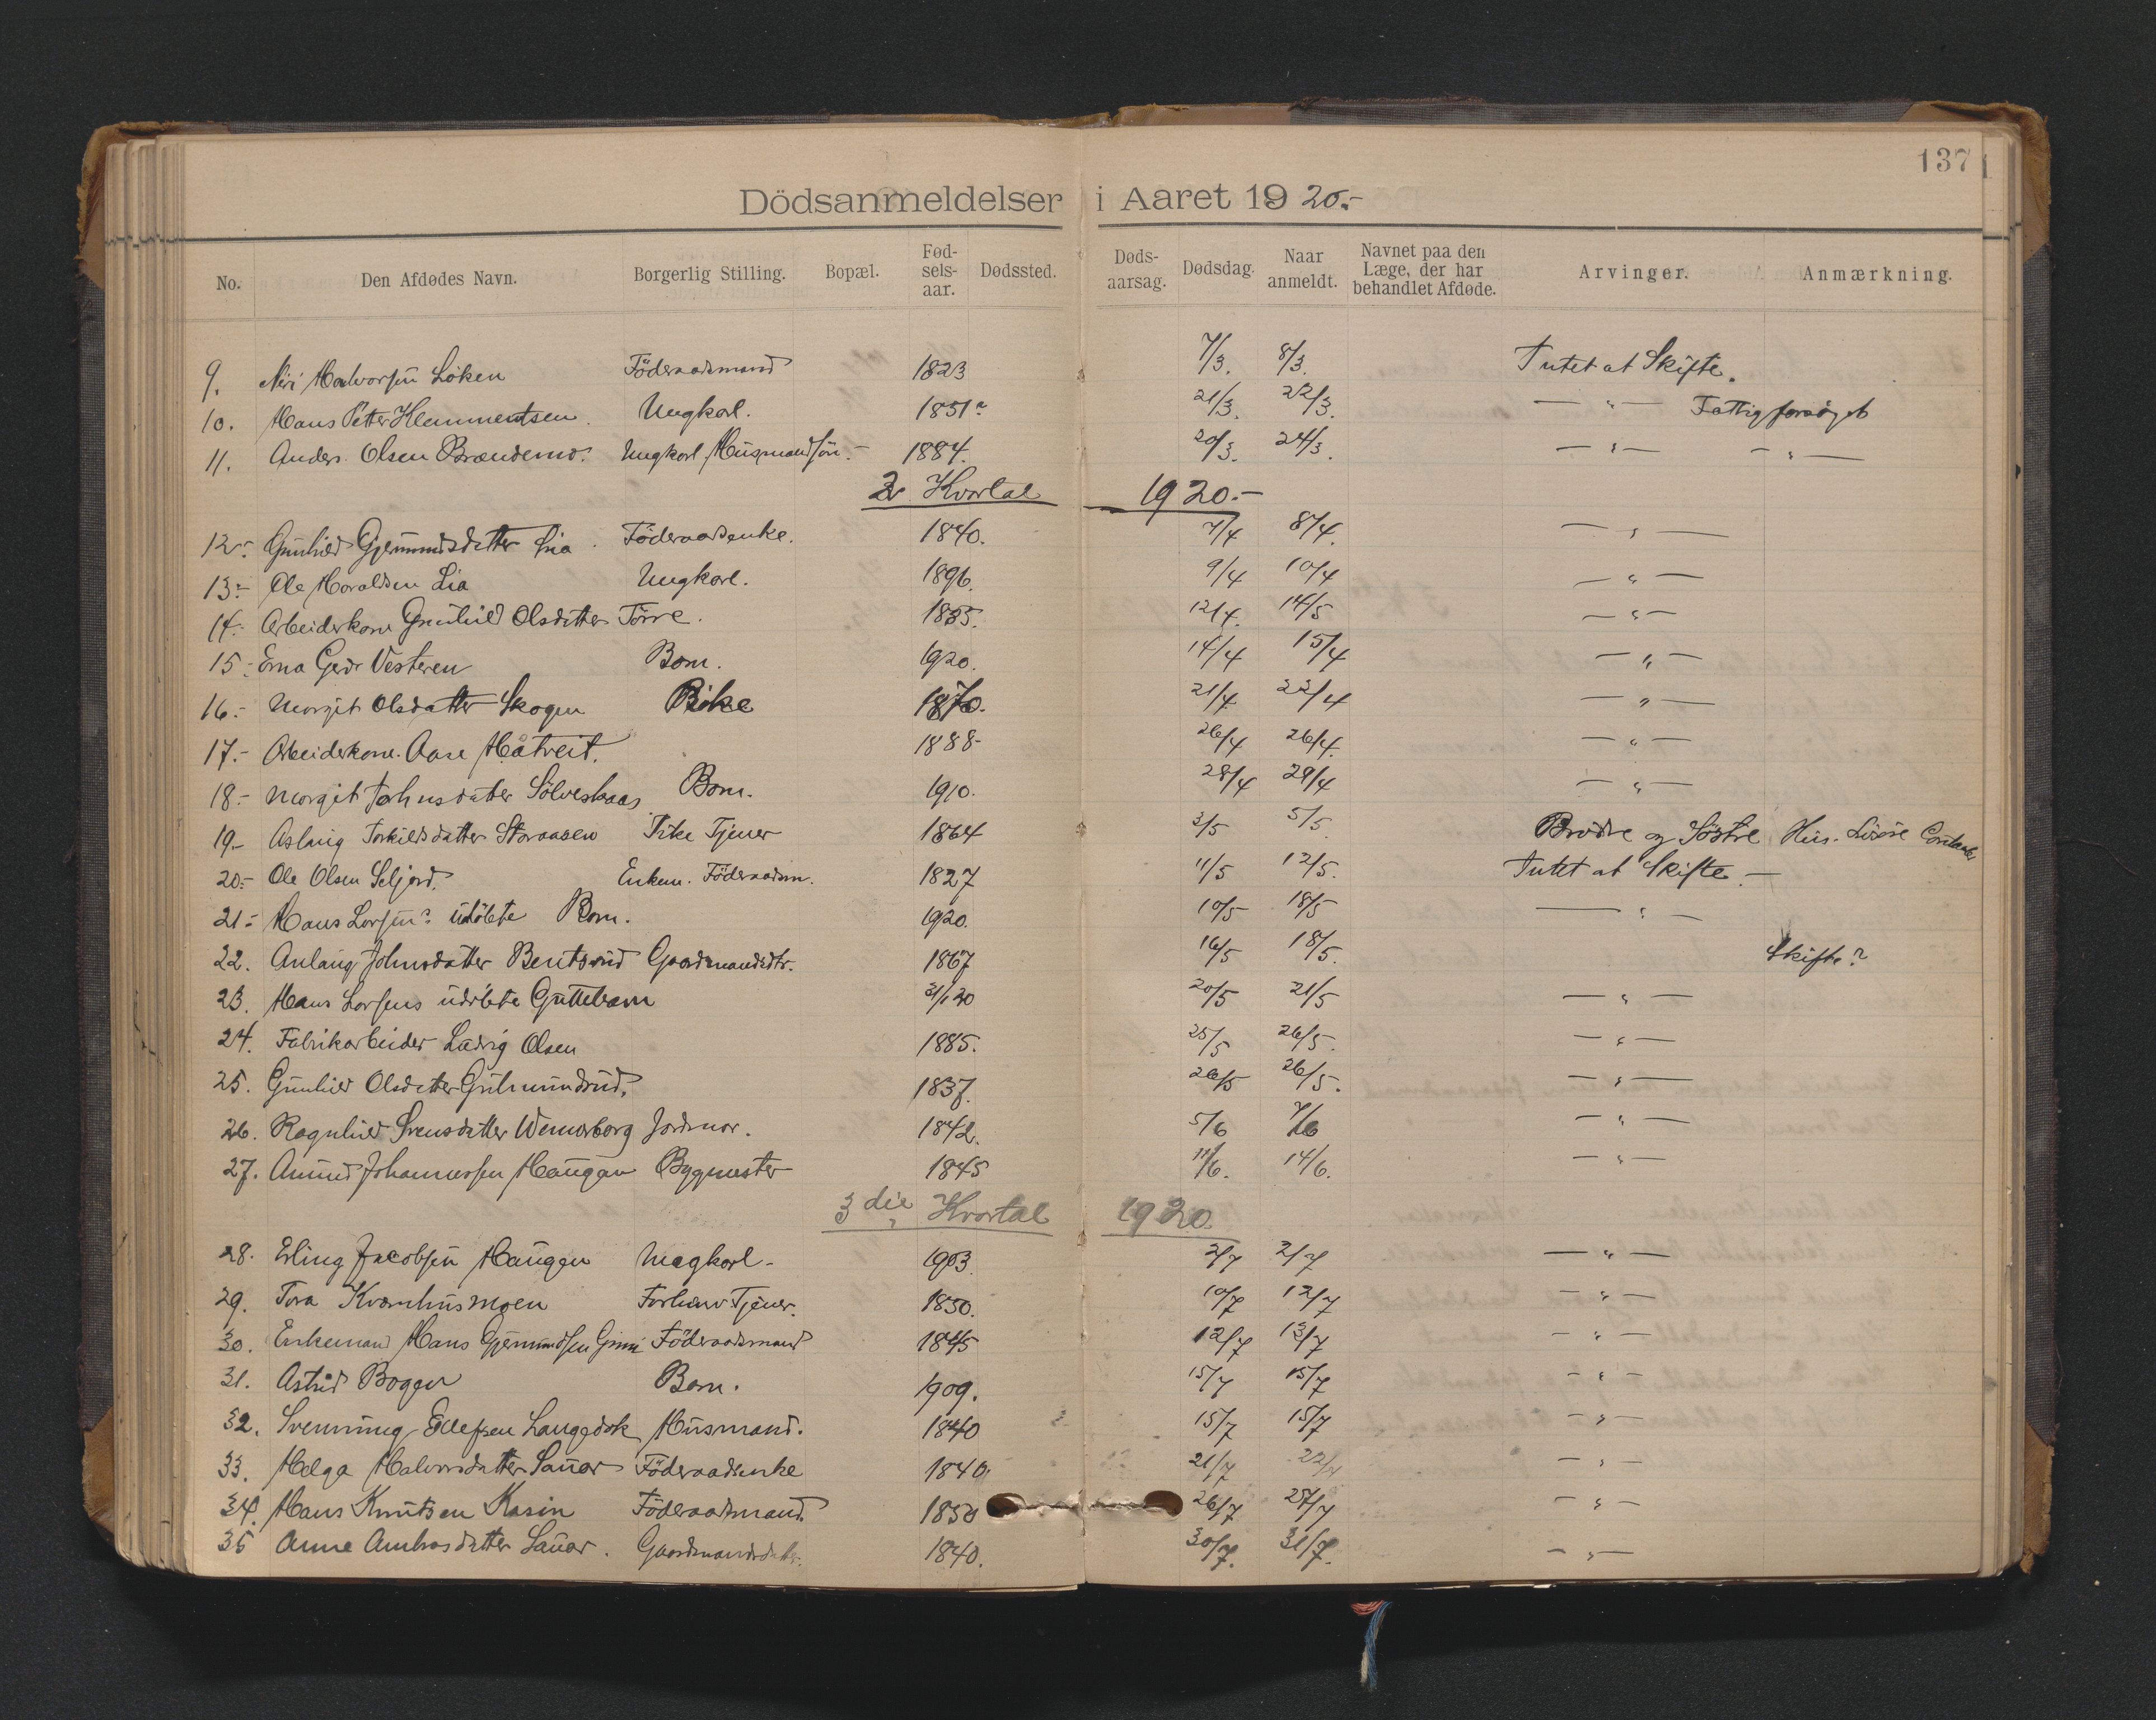 137
Dödsanmeldelser i Aaret 1920.-
No. Den Afdødes Navn. Borgerlig Stilling. Bopæl. Fød- sels- aar. Dødssted. Døds- aarsag. Dødsdag. Naar anmeldt. Navnet paa den Læge, der har behandlet Afdøde. Arvinger. Anmærkning.
9. Halvorsen Löken Föderaadsmand 1823 7/3. 8/3. Intet at Skifte.
10. Hans Petter Klemmentsen. Ungkarl. 1851? 21/3. 22/3. — " — Fattigforsörget
11. Anders Olsen Brændemo. Ungkarl Husmandsön.- 1884. 20/3. 24/3. — " — — " —
2 Kvartal 1920.-
12.- Gunhild Gjermundsdatter Lia. Föderaadsenke. 1840. 7/4 8/4. — " —
13.- Ole Haraldsen Lia Ungkarl. 1896. 9/4 10/4 — " —
14.- Arbeiderkone Gunhild Olsdatter Törre. 12/4. 14/5 — " —
15.- Erna Vesteren Barn. 1920. 14/4 15/4 — " —
16.- Margit Olsdatter Skogen Pike 1870. 21/4 22/4 — " —
17.- Arbeiderkone. Aase Håtveit. 1888- 26/4 26/4. — " —
18.- Margit Johnsdatter Sölveskaas Barn. 1910. 28/4 29/4 — " —
19.- Aslaug Torkildsdatter Staraasen Pike Tjener 1864 3/5 5/5 Brödre og Söstre
20.- Ole Olsen Seljord. Enkem. Föderaadsm. 1827 11/5 12/5. Intet at Skifte.-
21.- Hans Larsen? udöbte Barn. 1920. 10/5 18/5 — " —
22. Johnsdatter Bentsrud Gaardmandsdtr. 1867 16/5 18/5. Skifte?
23. Hans Larsens udöbte Guttebarn 31/1 20 20/5 21/5 — " —
24. Fabrikarbeider Ludvig Olsen 1885. 25/5 26/5. — " —
25. Gunhild Olsdatter Gulmundrud. 1837. 26/5 26/5. — " —
26. Ragnhild Svensdatter Wennerborg Jordmor. 1842. 5/6 7/6 — " —
27. Amund Johannessen Haugan Bygmester 1845 11/6. 14/6. — " —
3die Kvartal 1920.
28. Erling Jacobsen Haugen Ungkarl- 1903. 2/7 2/7 — " —
29. Tora Kvernhusmoen Tjener. 1850. 10/7 12/7 — " —
30. Enkemand Hans Gjermundsen Föderaadsmand 1845 12/7 13/7 — " —
31. Astrid Bogen Barn. 1909. 15/7 15/7 — " —
32. Svennung Ellefsen Langedok Husmand. 1840 15/7 15/7 — " —
33. Helga Halvorsdatter Sauar Föderaadsenke 1840. 21/7 22/7 — " —
34. Hans Knutsen Kasin Föderaadsmand. 1850 26/7 27/7 — " —
35 Anne Sauar. Gaardmandsdatr. 1840. 30/7. 31/7. — " —